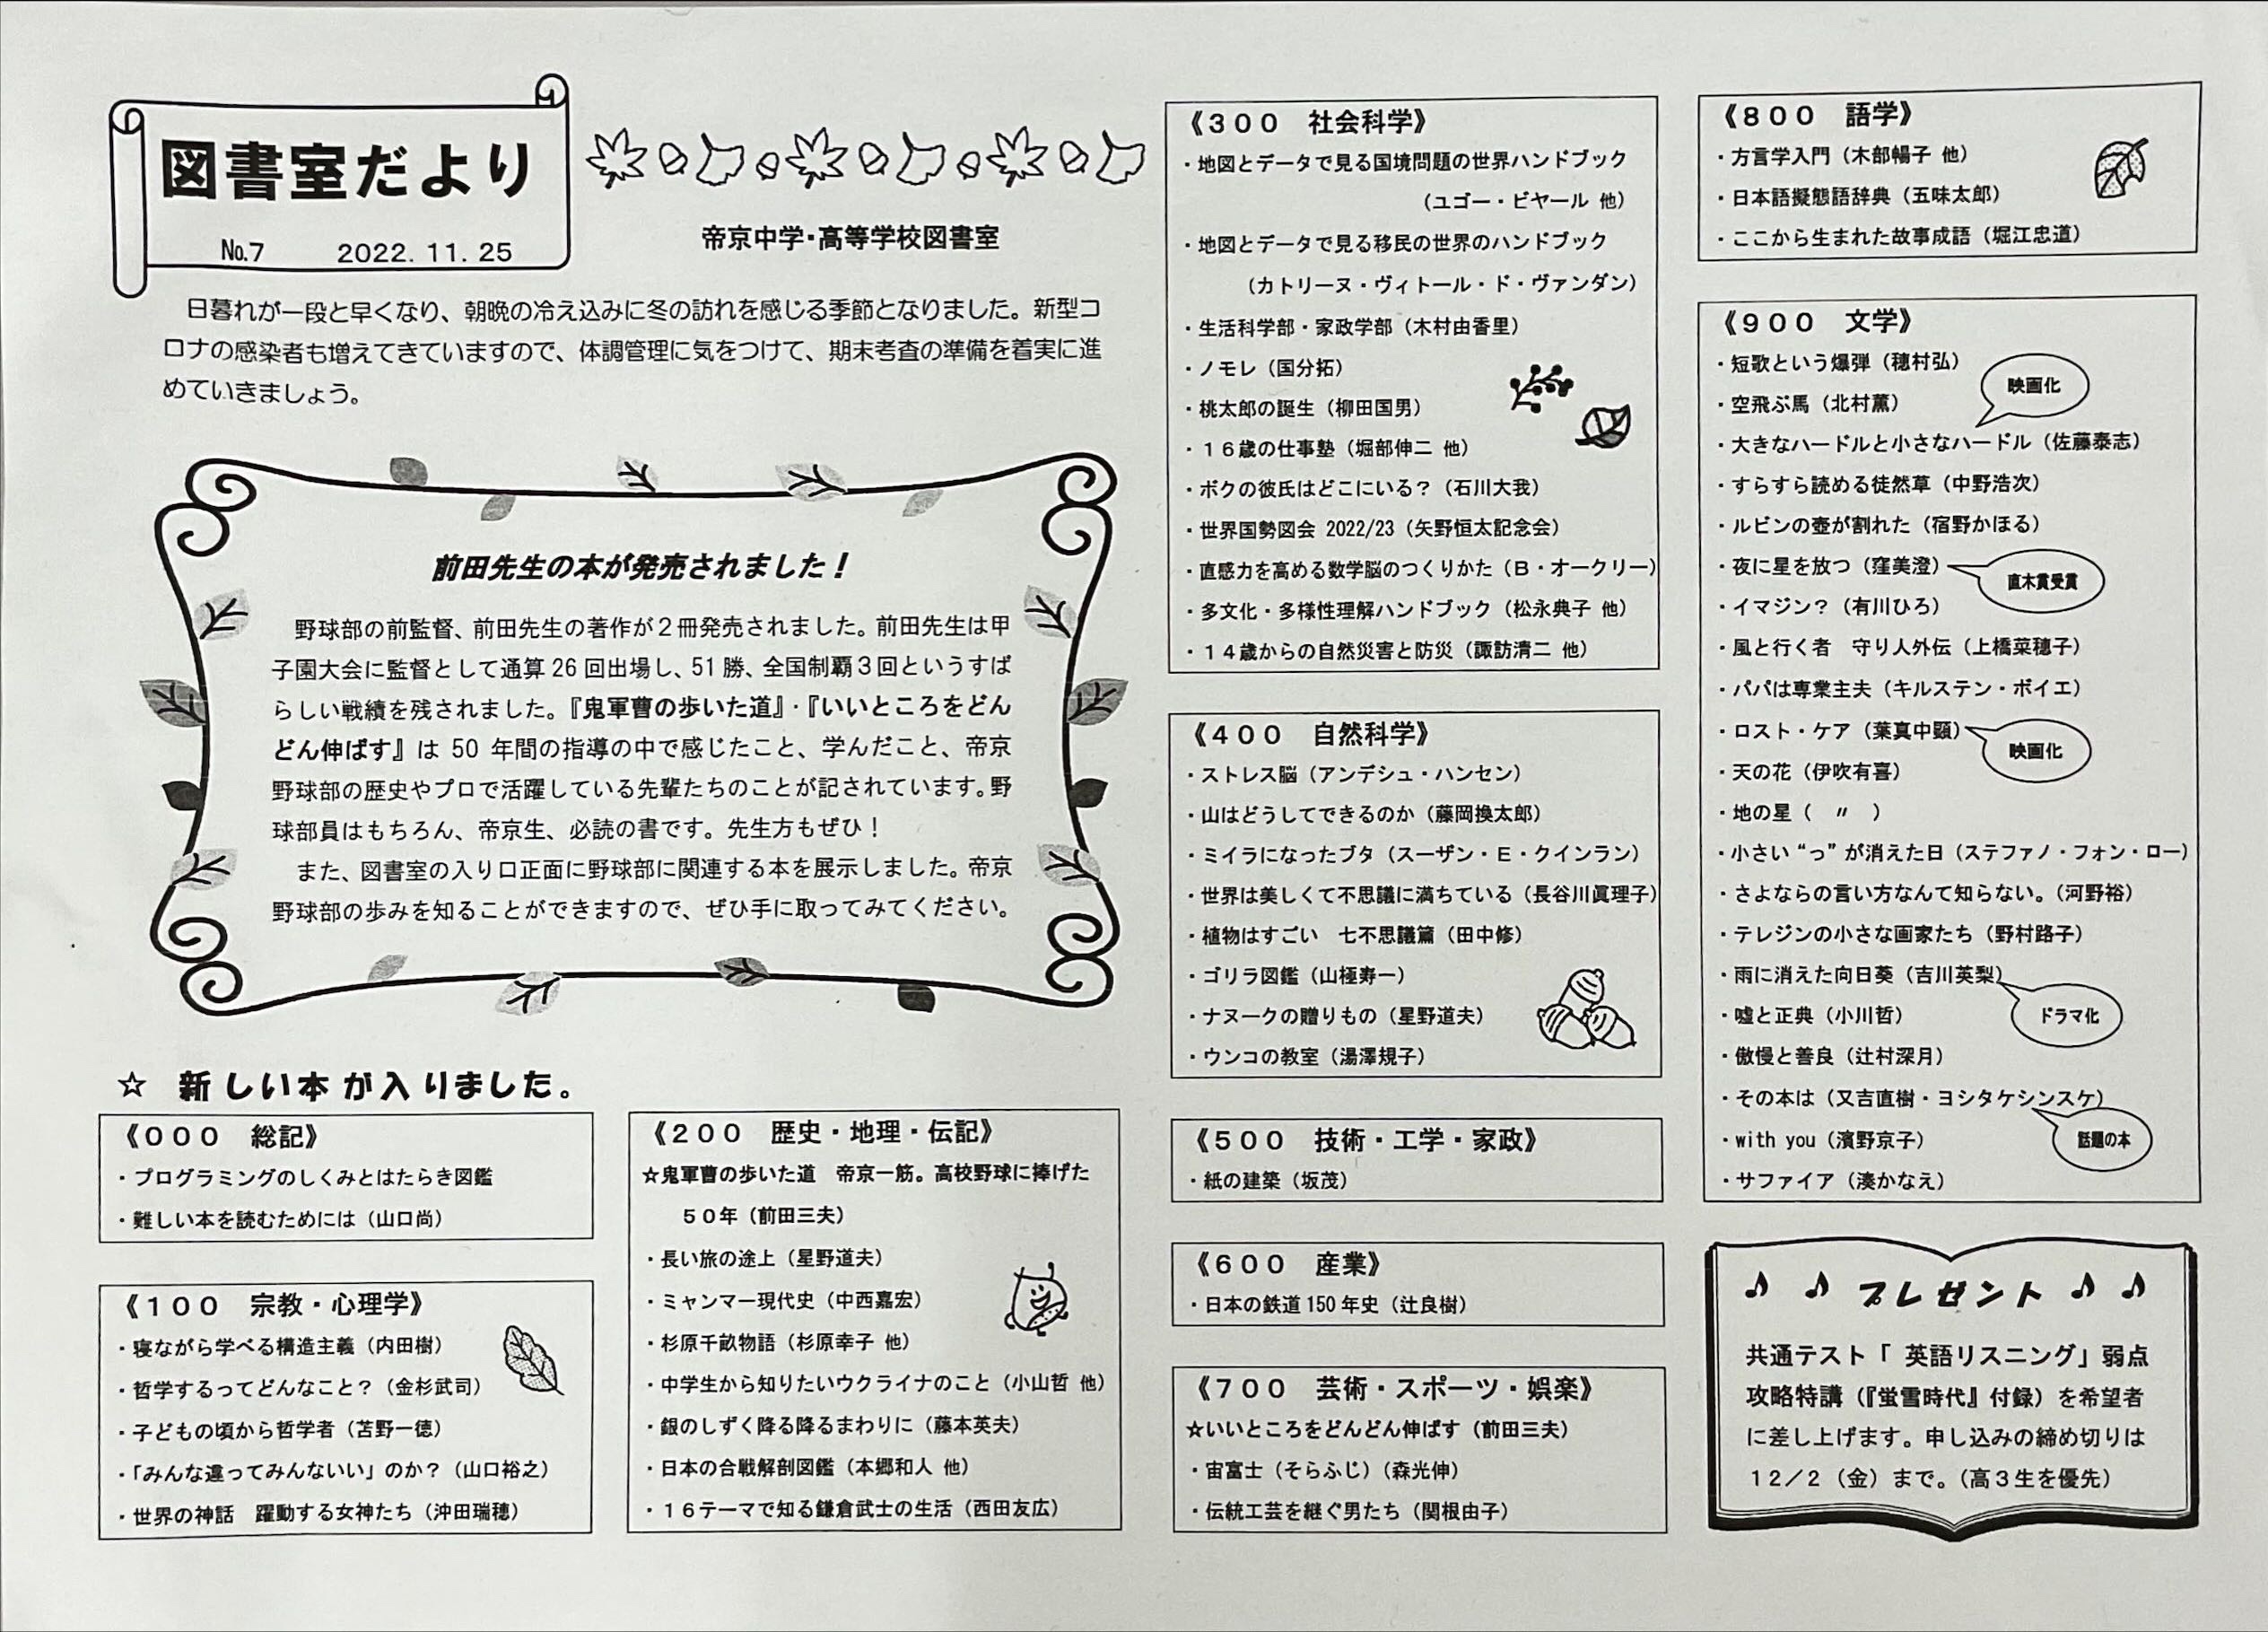 図書室だより
№7 2022.11.25
帝京中学・高等学校図書室
日暮れが一段と早くなり、朝晩の冷え込みに冬の訪れを感じる季節となりました。新型コ
ロナの感染者も増えてきていますので、体調管理に気をつけて、期末考査の準備を着実に進
めていきましょう。
前田先生の本が発売されました！
野球部の前監督、前田先生の著作が２冊発売されました。前田先生は甲
子園大会に監督として通算 26 回出場し、51 勝、全国制覇３回というすば
らしい戦績を残されました。『鬼軍曹の歩いた道』・『いいところをどん
どん伸ばす』は 50 年間の指導の中で感じたこと、学んだこと、帝京
野球部の歴史やプロで活躍している先輩たちのことが記されています。野
球部員はもちろん、帝京生、必読の書です。先生方もぜひ！
また、図書室の入り口正面に野球部に関連する本を展示しました。帝京
野球部の歩みを知ることができますので、ぜひ手に取ってみてください。
☆ 新しい本が入りました。
《０００ 総記》
・プログラミングのしくみとはたらき図鑑
・難しい本を読むためには（山口尚）
《１００ 宗教・心理学》
・寝ながら学べる構造主義（内田樹）
・哲学するってどんなこと？（金杉武司）
・子どもの頃から哲学者（苫野一徳）
・「みんな違ってみんないい」のか？（山口裕之）
・世界の神話 躍動する女神たち（沖田瑞穂）
《２００ 歴史・地理・伝記》
☆鬼軍曹の歩いた道 帝京一筋。高校野球に捧げた
５０年（前田三夫）
・長い旅の途上（星野道夫）
・ミャンマー現代史（中西嘉宏）
・杉原千畝物語（杉原幸子 他）
・中学生から知りたいウクライナのこと（小山哲 他）
・銀のしずく降る降るまわりに（藤本英夫）
・日本の合戦解剖図鑑（本郷和人 他）
・１６テーマで知る鎌倉武士の生活（西田友広）
《３００ 社会科学》
・地図とデータで見る国境問題の世界ハンドブック
（ユゴー・ビヤール 他）
・地図とデータで見る移民の世界のハンドブック
（カトリーヌ・ヴィトール・ド・ヴァンダン）
・生活科学部・家政学部（木村由香里）
・ノモレ（国分拓）
・桃太郎の誕生（柳田国男）
・１６歳の仕事塾（堀部伸二 他）
・ボクの彼氏はどこにいる？（石川大我）
・世界国勢図会 2022/23（矢野恒太記念会）
・直感力を高める数学脳のつくりかた（Ｂ・オークリー）
・多文化・多様性理解ハンドブック（松永典子 他）
・１４歳からの自然災害と防災（諏訪清二 他）
《４００ 自然科学》
・ストレス脳（アンデシュ・ハンセン）
・山はどうしてできるのか（藤岡換太郎）
・ミイラになったブタ（スーザン・Ｅ・クインラン）
・世界は美しくて不思議に満ちている（長谷川眞理子）
・植物はすごい 七不思議篇（田中修）
・ゴリラ図鑑（山極寿一）
・ナヌークの贈りもの（星野道夫）
・ウンコの教室（湯澤規子）
《５００ 技術・工学・家政》
・紙の建築（坂茂）
《６００ 産業》
・日本の鉄道 150 年史（辻良樹）
《７００ 芸術・スポーツ・娯楽》
☆いいところをどんどん伸ばす（前田三夫）
・宙富士（そらふじ）（森光伸）
・伝統工芸を継ぐ男たち（関根由子）
《８００ 語学》
・方言学入門（木部暢子 他）
・日本語擬態語辞典（五味太郎）
・ここから生まれた故事成語（堀江忠道）
《９００ 文学》
・短歌という爆弾（穂村弘）
映画化
・空飛ぶ馬（北村薫）
・大きなハードルと小さなハードル（佐藤泰志）
・すらすら読める徒然草（中野浩次）
・ルビンの壺が割れた（宿野かほる）
・夜に星を放つ（窪美澄）
直木賞受賞
・イマジン？（有川ひろ）
・風と行く者 守り人外伝（上橋菜穂子）
・パパは専業主夫（キルステン・ボイエ）
・ロスト・ケア（葉真中顕）
映画化
・天の花（伊吹有喜）
・地の星（ 〃 ）
・小さい“っ”が消えた日（ステファノ・フォン・ロー）
・さよならの言い方なんて知らない。（河野裕）
・テレジンの小さな画家たち（野村路子）
・雨に消えた向日葵（吉川英梨）
ドラマ化
・嘘と正典（小川哲）
・傲慢と善良（辻村深月）
・その本は（又吉直樹・ヨシタケシンスケ）
話題の本
・with you（濱野京子）
・サファイア（湊かなえ）
♪ ♪ プレゼント ♪ ♪
共通テスト「 英語リスニング」弱点
攻略特講（『蛍雪時代』付録）を希望者
に差し上げます。申し込みの締め切りは
１２／２（金）まで。（高３生を優先）